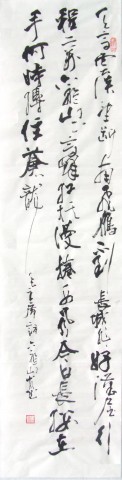 天高云淡望断南飛雁不到長城非好漢屈指行
程二万六盤山上高峰紅旗漫捲西風今日長纓在
手何時縛住蒼龍
毛主席詞六盤山